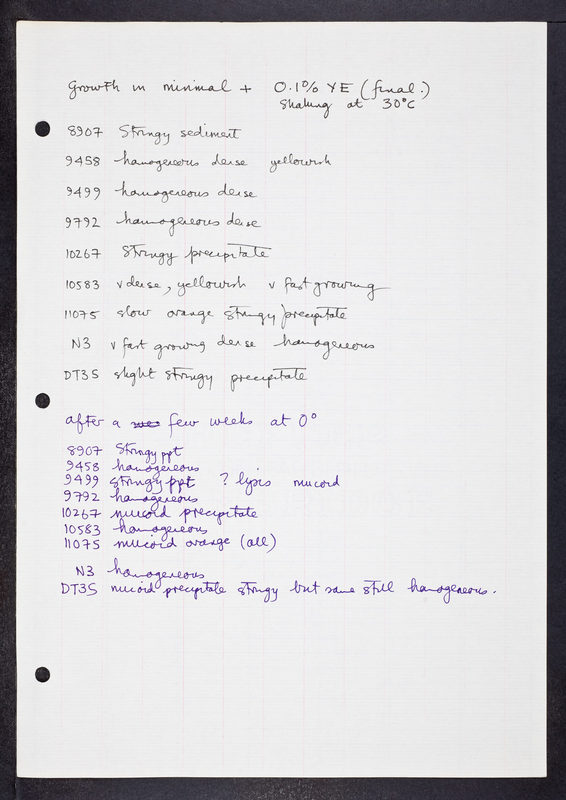 Growth in minimal + 0.1% YE (final.)
Shaking at 30°C
8907 Stringy sediment
9458 homogeneous dense yellowish
9499 homogeneous dense
9792 homogeneous dense
10267 Stringy precipitate
10583 v dense, yellowish v fast growing
11075 slow orange stringy precipitate
N3 v fast growing dense homogeneous
DT3S slight stringy precipitate
after a few weeks at 0°
8907 Stringy ppt
9458 homogeneous
9499 stringy ppt ? lysis mucoid
9792 homogeneous
10267 mucoid precipitate
10583 homogeneous
11075 mucoid orange (all)
N3 homogeneous
DT3S mucoid precipitate stringy but some still homogeneous.